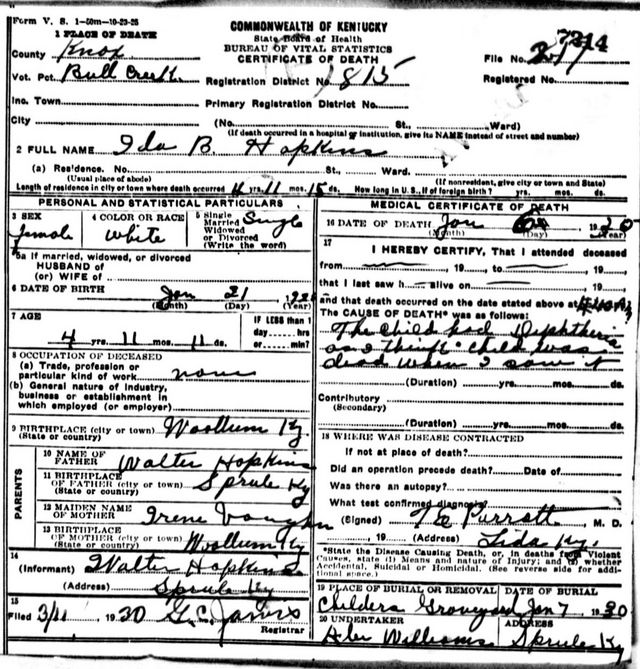 Form V. S. 1-50m-10-23-25
COMMONWEALTH OF KENTUCKY
State Board of Health
BUREAU OF VITAL STATISTICS
CERTIFICATE OF DEATH
1 PLACE OF DEATH
County Knox
Vot. Pct. Bull Creek
Inc. Town
City
Registration District No. 815
Primary Registration District No.
File No. 7214
Registered No.
(No. St., Ward)
(If death occurred in a hospital or institution, give its NAME instead of street and number)
2 FULL NAME Ida B. Hopkins
(a) Residence. No. St., Ward.
(Usual place of abode) (If nonresident, give city or town and State)
Length of residence in city or town where death occurred 4 yrs. 11 mos. 15 ds. How long in U. S., if of foreign birth? yrs. mos. ds.
PERSONAL AND STATISTICAL PARTICULARS
3 SEX female
4 COLOR OR RACE white
5 Single Married Widowed or Divorced (Write the word) Single
5a If married, widowed, or divorced
HUSBAND of
(or) WIFE of
6 DATE OF BIRTH Jan 21
(Month) (Day) (Year)
7 AGE
4 yrs. 11 mos. 11 ds.
IF LESS than 1 day, hrs. or min.?
8 OCCUPATION OF DECEASED
(a) Trade, profession or particular kind of work none
(b) General nature of industry, business or establishment in which employed (or employer)
9 BIRTHPLACE (city or town) Woollum Ky.
(State or country)
PARENTS
10 NAME OF FATHER Walter Hopkins
11 BIRTHPLACE OF FATHER (city or town) Sprule Ky
(State or country)
12 MAIDEN NAME OF MOTHER Irene Vaughn
13 BIRTHPLACE OF MOTHER (city or town) Woollum Ky
(State or country)
14
(Informant) Walter Hopkins
(Address) Sprule Ky
15
Filed 3/11 1930 G. C. Jarvis
Registrar
MEDICAL CERTIFICATE OF DEATH
16 DATE OF DEATH Jan
(Month) (Day) (Year)
17
I HEREBY CERTIFY, That I attended deceased
from 19 to 19
that I last saw h alive on 19
and that death occurred on the date stated above at
The CAUSE OF DEATH* was as follows:
The child had Diphtheria
and child was
dead when I saw it
(Duration) yrs. mos. ds.
Contributory
(Secondary)
(Duration) yrs. mos. ds.
18 WHERE WAS DISEASE CONTRACTED
If not at place of death?
Did an operation precede death? Date of
Was there an autopsy?
What test confirmed diagnosis?
(Signed) Parrott M. D.
, 19 (Address) Lida Ky.
*State the Disease Causing Death, or, in deaths from Violent
Causes, state (1) Means and nature of Injury; and (2) whether
Accidental, Suicidal or Homicidal. (See reverse side for additional space.)
19 PLACE OF BURIAL OR REMOVAL DATE OF BURIAL
Childers Graveyard Jan 7 1930
20 UNDERTAKER ADDRESS
Abe Williams Sprule Ky